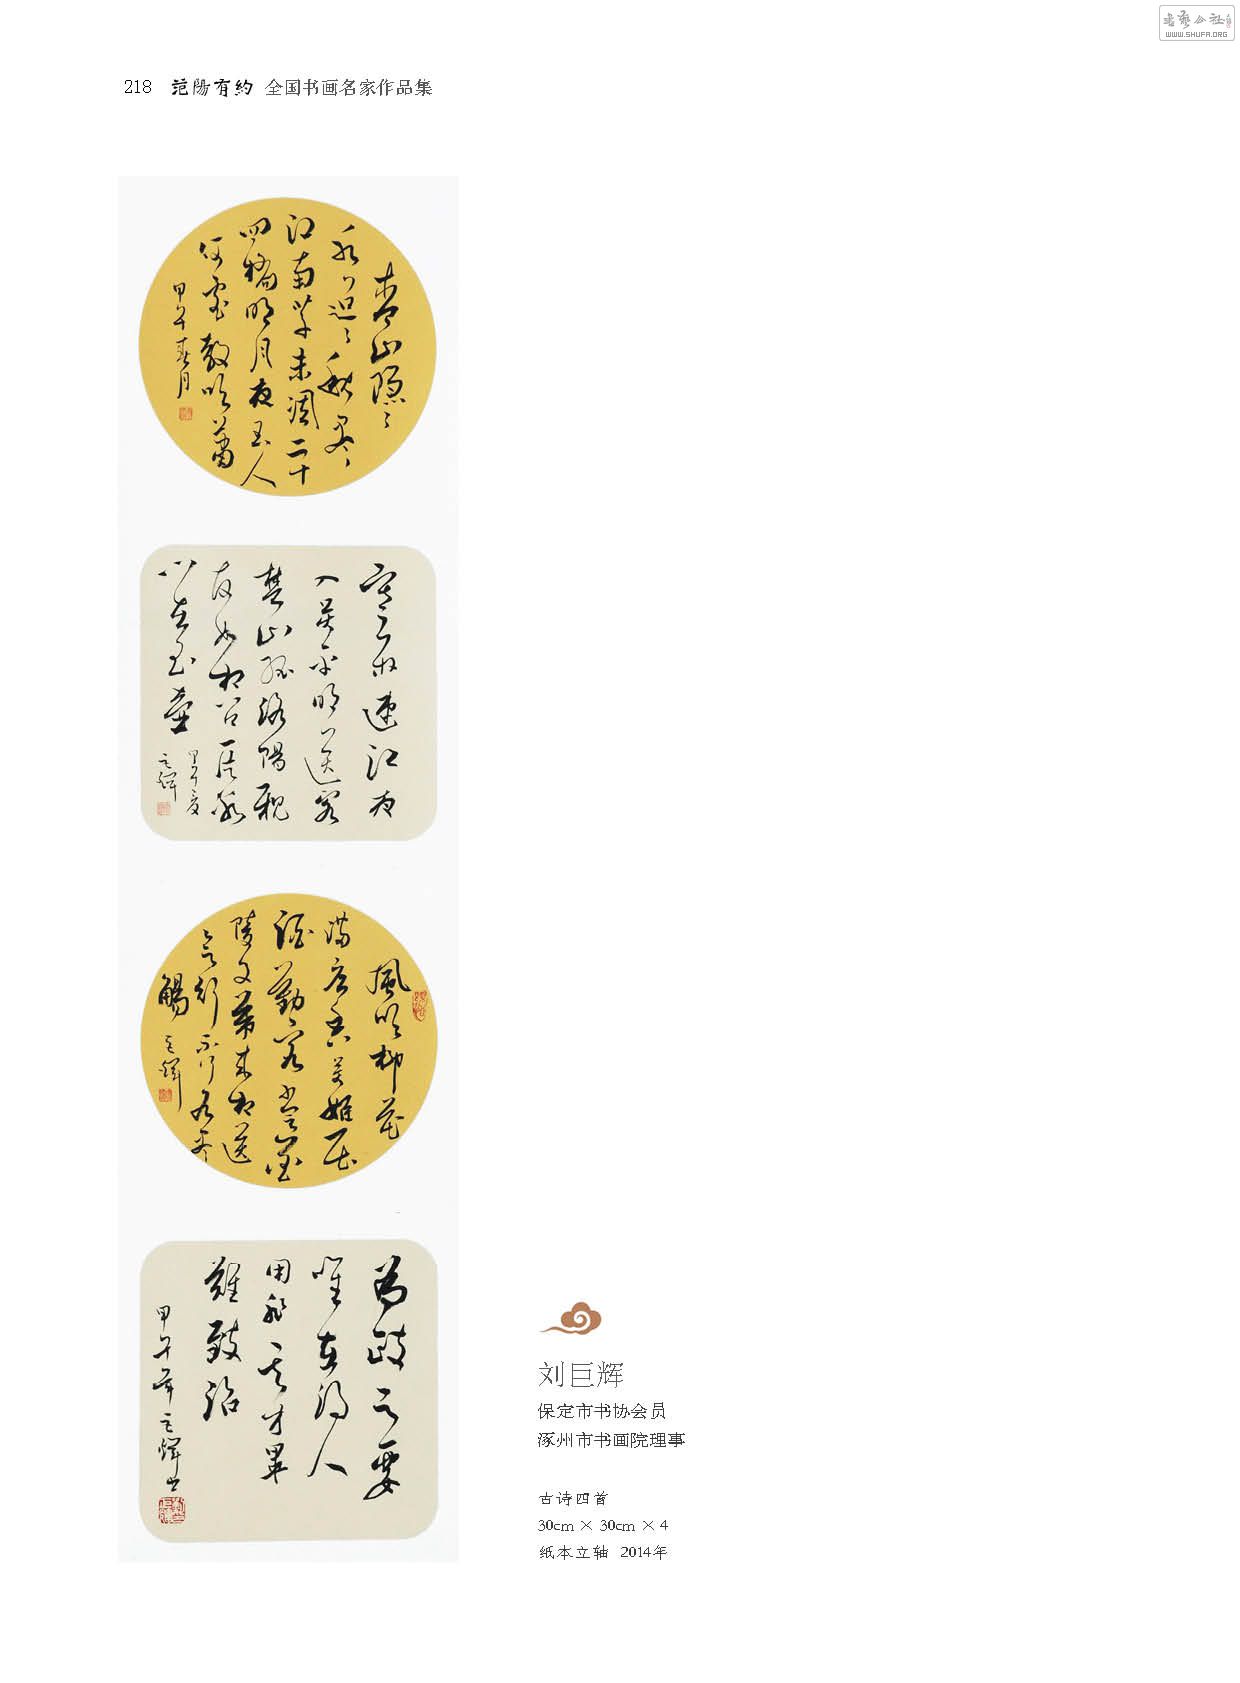 书艺公社
WWW.SHUFA.ORG
218 范陽有約 全国书画名家作品集
青山隐〻
水迢〻秋尽
江南草未凋二十
四橋明月夜玉人
何處教吹簫
甲午春月
寒雨連江夜
入吴平明送客
楚山孤洛陽親
友如相问一片冰
心在玉壺
甲午夏
巨輝
風吹柳花
满店香吴姬压
酒勸客尝金
陵子弟来相送
欲行不行各尽
觴
巨輝
為政之要
唯在得人
用非其才畢
難致治
甲午年巨輝书
刘巨辉
保定市书协会员
涿州市书画院理事
古诗四首
30cm × 30cm × 4
纸本立轴 2014年